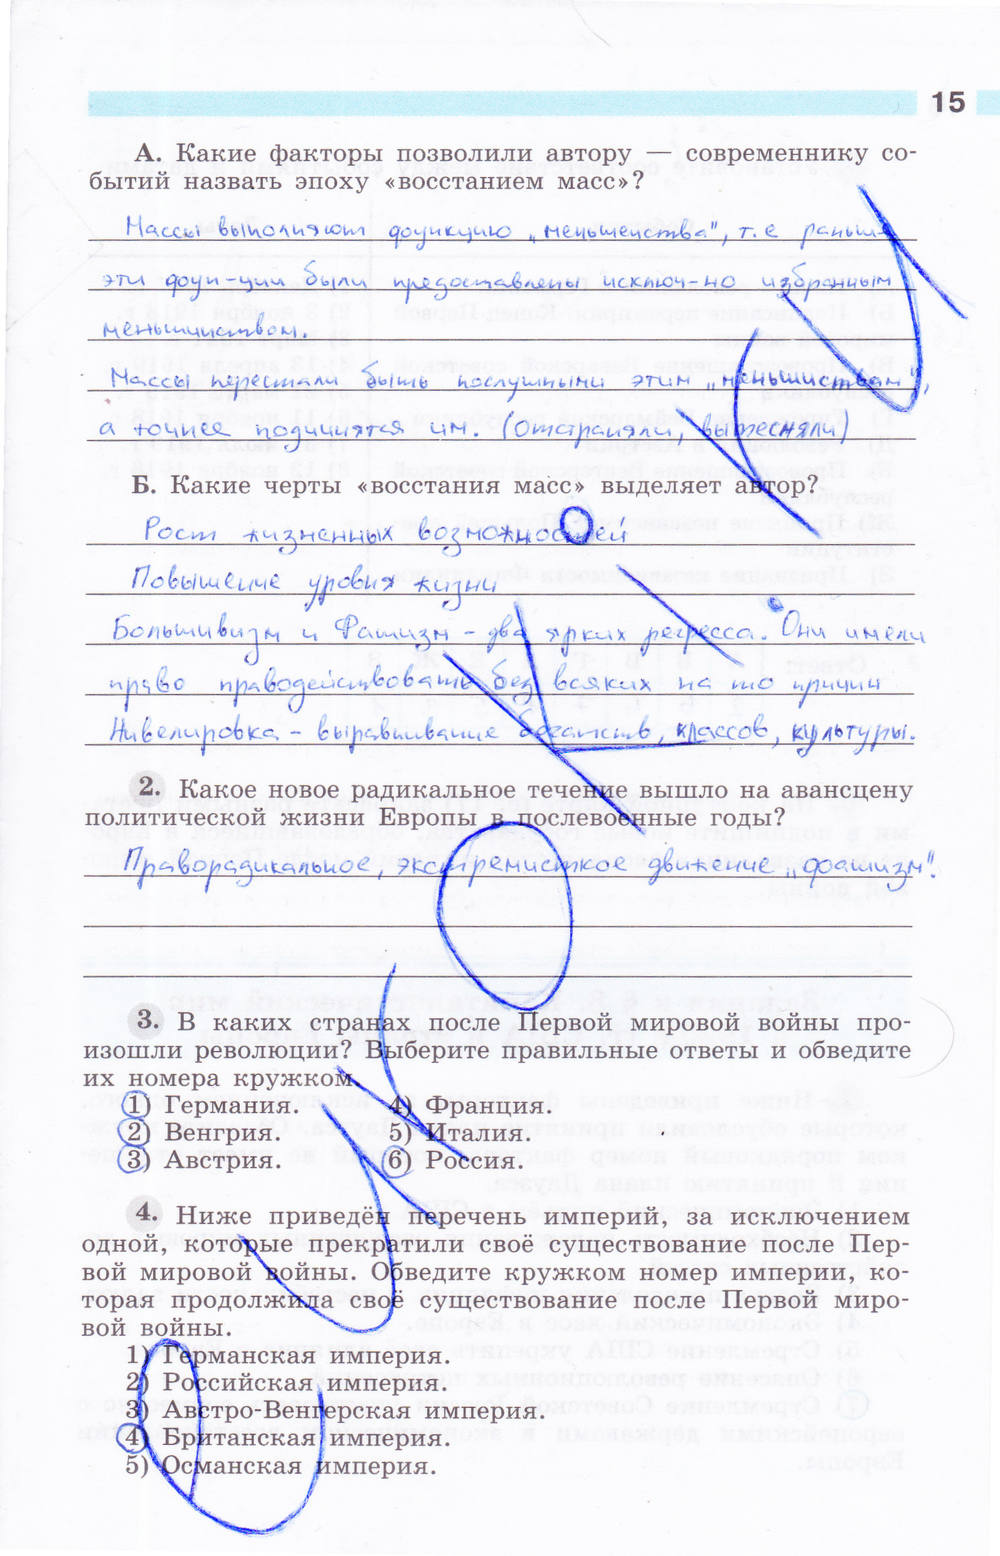 15
А. Какие факторы позволили автору — современнику со-
бытий назвать эпоху «восстанием масс»?
Массы выполняют функцию „меньшенства", т.е раньше
эти фун-ции были предоставлены исключ-но избранным
меньшинством.
Массы перестали быть послушными этим „меньшиствам",
а точнее подчинятся им. (Отстраняли, вытесняли)
Б. Какие черты «восстания масс» выделяет автор?
Рост жизненных возможностей
Повышение уровня жизни
Большивизм и Фашизм – два ярких регресса. Они имели
право праводействовать без всяких на то причин
Нивелировка – выравнивание богатств, классов, культуры.
2. Какое новое радикальное течение вышло на авансцену
политической жизни Европы в послевоенные годы?
Праворадикальное, экстремисткое движение „фашизм".
3. В каких странах после Первой мировой войны про-
изошли революции? Выберите правильные ответы и обведите
их номера кружком.
1) Германия. 4) Франция.
2) Венгрия. 5) Италия.
3) Австрия. 6) Россия.
4. Ниже приведён перечень империй, за исключением
одной, которые прекратили своё существование после Пер-
вой мировой войны. Обведите кружком номер империи, ко-
торая продолжила своё существование после Первой миро-
вой войны.
1) Германская империя.
2) Российская империя.
3) Австро-Венгерская империя.
4) Британская империя.
5) Османская империя.